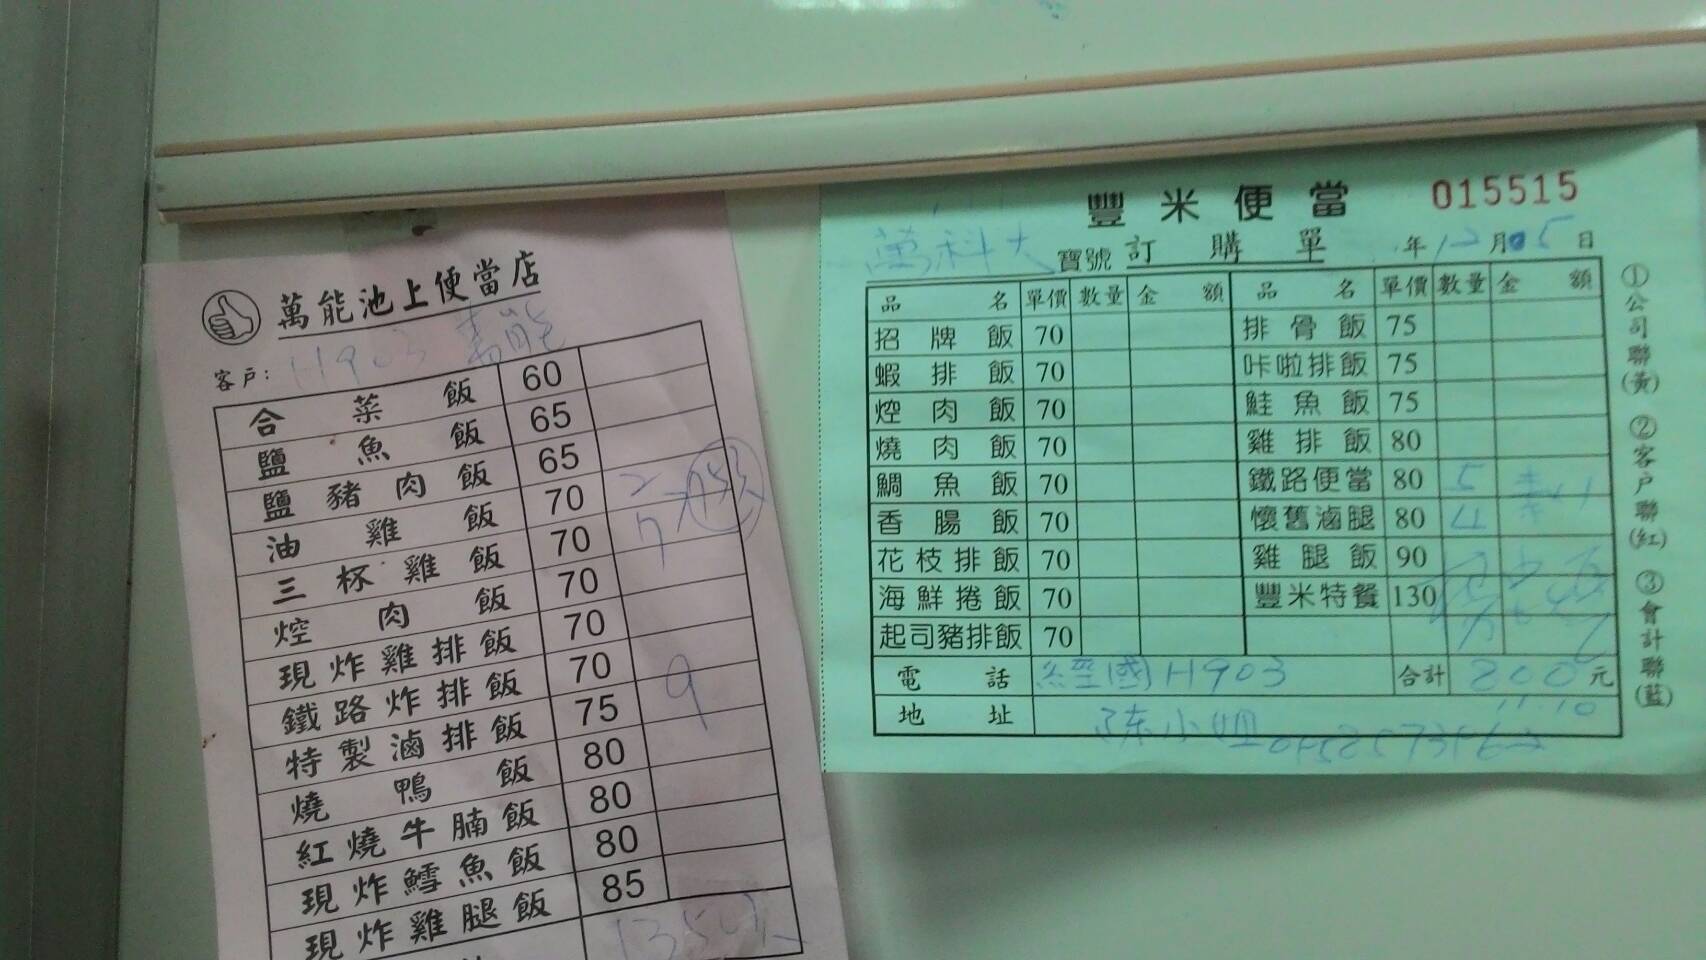 萬能池上便當店
客戶: H903 萬能
合菜飯 60
鹽魚飯 65
鹽豬肉飯 65
油雞飯 70 2
三杯雞飯 70 7
焢肉飯 70
現炸雞排飯 70
鐵路炸排飯 70 9
特製滷排飯 75
燒鴨飯 80
紅燒牛腩飯 80
現炸鱈魚飯 80
現炸雞腿飯 85
1350
豐米便當 015515
萬科大 寶號 訂購單 年12月05日
品名 單價 數量 金額 品名 單價 數量 金額
招牌飯 70 排骨飯 75
蝦排飯 70 咔啦排飯 75
焢肉飯 70 鮭魚飯 75
燒肉飯 70 雞排飯 80
鯛魚飯 70 鐵路便當 80 5
香腸飯 70 懷舊滷腿 80 4
花枝排飯 70 雞腿飯 90
海鮮捲飯 70 豐米特餐 130
起司豬排飯 70
電話 經國H903 合計 800元
11:10
地址 陳小姐
①公司聯(黃) ②客戶聯(紅) ③會計聯(藍)